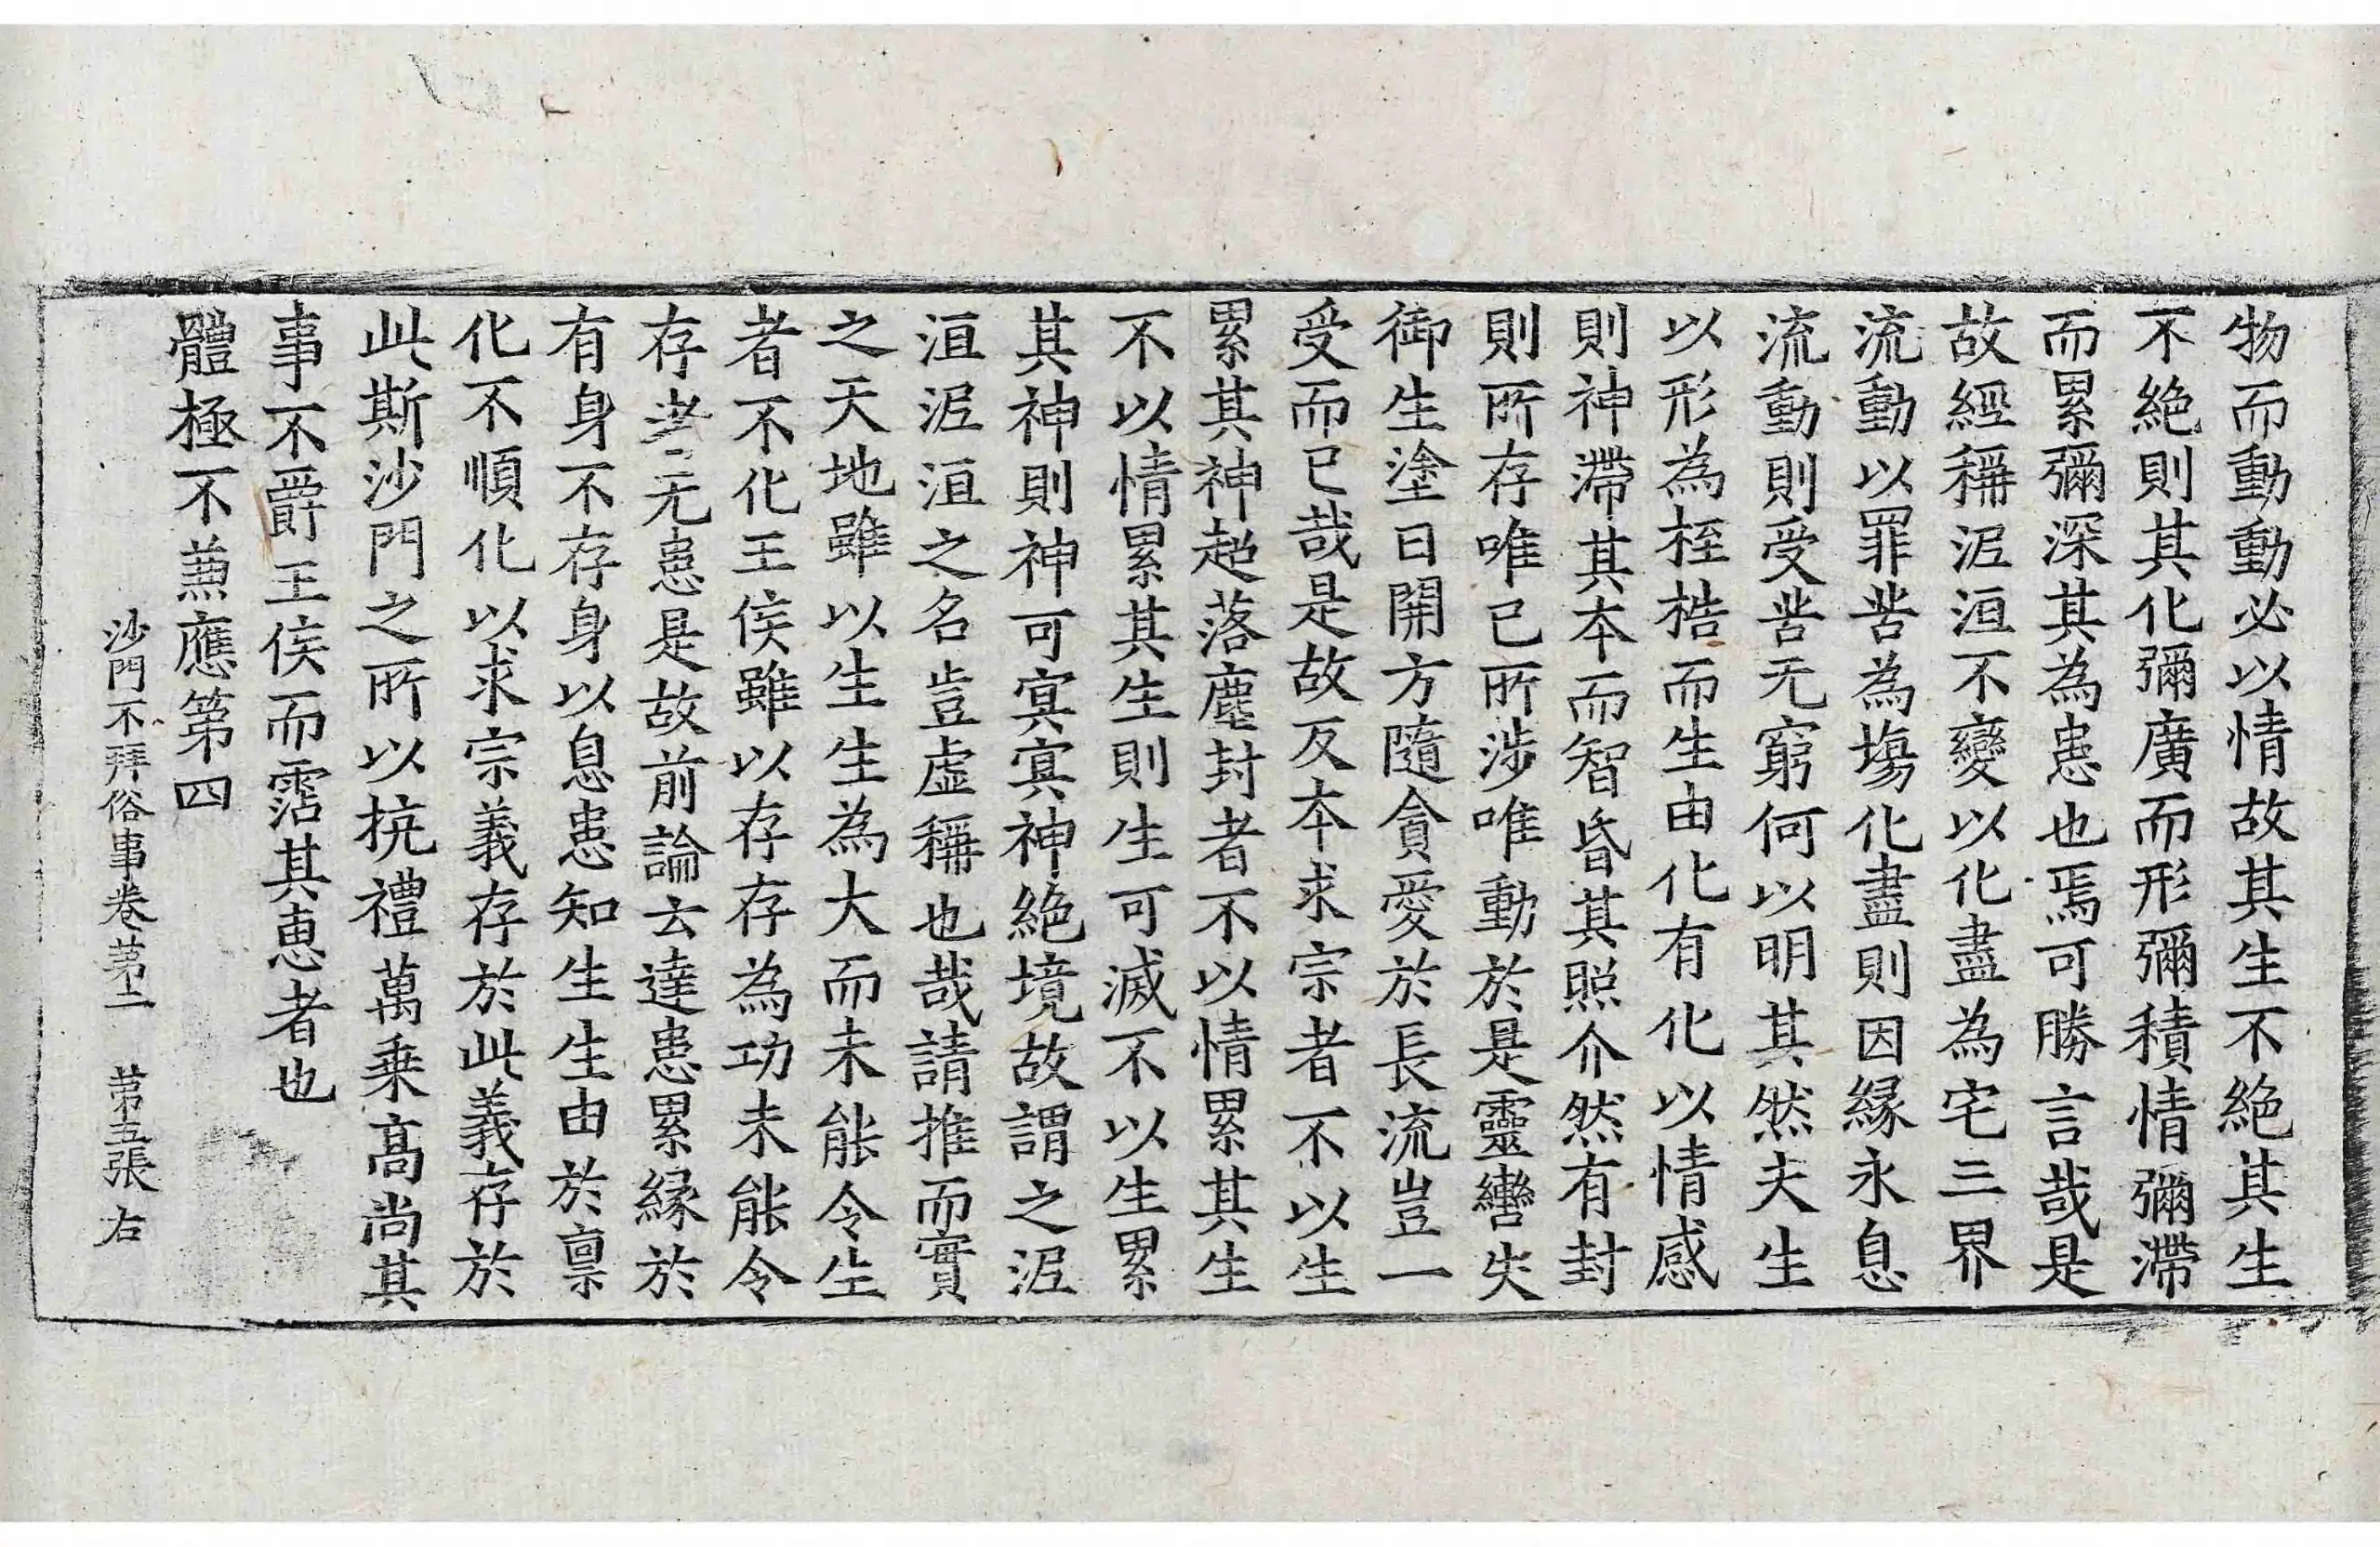 物而動動必以情故其生不絶其生
不絶則其化彌廣而形彌積情彌滯
而累彌深其為患也焉可勝言哉是
故經稱泥洹不變以化盡為宅三界
流動以罪苦為塲化盡則因緣永息
流動則受苦无窮何以明其然夫生
以形為桎梏而生由化有化以情感
則神滯其本而智昏其照介然有封
則所存唯已所涉唯動於是靈轡失
御生塗日開方隨貪愛於長流豈一
受而已哉是故反本求宗者不以生
累其神超落塵封者不以情累其生
不以情累其生則生可滅不以生累
其神則神可冥冥神絶境故謂之泥
洹泥洹之名豈虛稱也哉請推而實
之天地雖以生生為大而未能令生
者不化王侯雖以存存為功未能令
存者无患是故前論云達患累緣於
有身不存身以息患知生生由於禀
化不順化以求宗義存於此義存於
此斯沙門之所以抗禮萬乘高尚其
事不爵王侯而霑其惠者也
體極不兼應第四
沙門不拜俗事卷第二 第五張 右